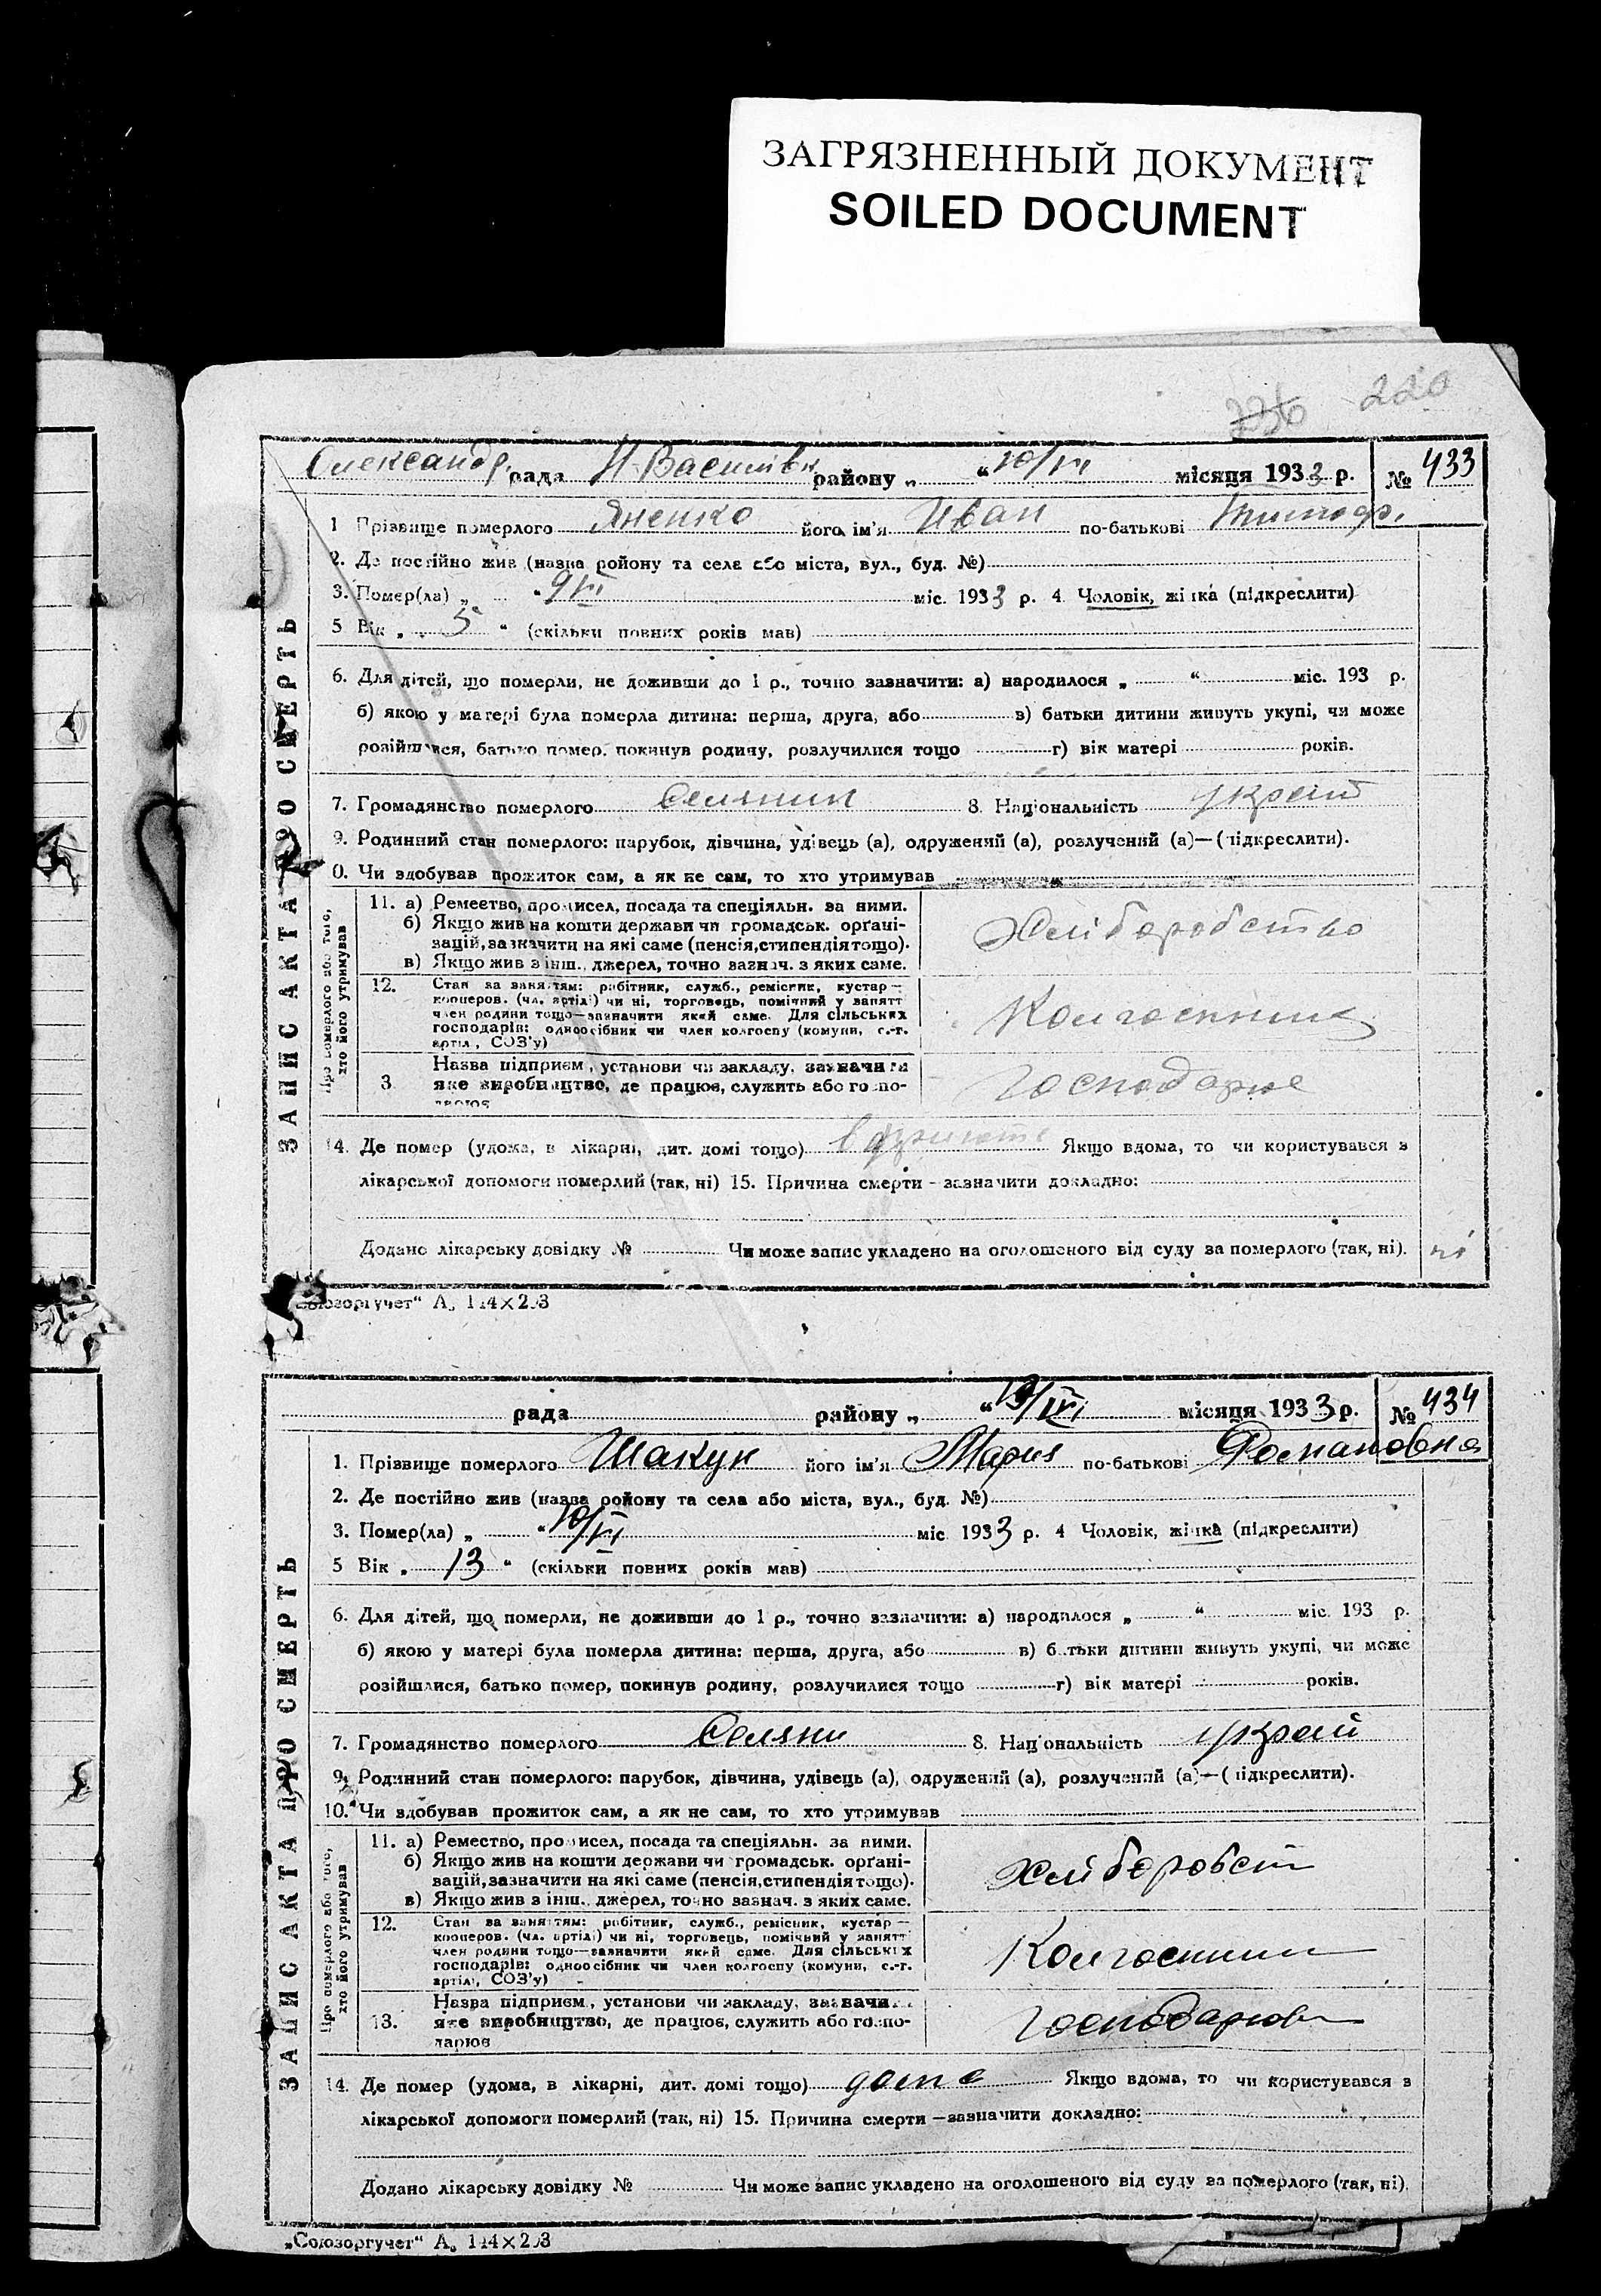 ЗАГРЯЗНЕННЫЙ ДОКУМЕНТ
SOILED DOCUMENT
236 220
Олександр. рада Н-Василівк району „ “ 10/VI місяця 1933 р. № 433
1 Прізвище померлого Яненко його ім'я Иван по-батькові Тимоф.
2. Де постійно жив (назва ройону та села або міста, вул., буд. №)
3. Помер(ла) „ “ 9/VI міс. 1933 р. 4 Чоловік, жінка (підкреслити)
5 Вік „ 5 “ (скільки повних років мав)
6. Для дітей, що померли, не доживши до 1 р., точно зазначити: а) народилося „ “ міс. 193 р.
б) якою у матері була померла дитина: перша, друга, або в) батьки дитини живуть укупі, чи може
розійшлися, батько помер, покинув родину, розлучилися тощо г) вік матері років.
7. Громадянство померлого Селянин 8. Національність україн
9. Родинний стан померлого: парубок, дівчина, удівець (а), одружений (а), розлучений (а)—(підкреслити).
0. Чи здобував прожиток сам, а як не сам, то хто утримував
11. а) Ремество, промисел, посада та спеціяльн. за ними.
б) Якщо жив на кошти держави чи громадськ. орґані-
зацій, зазначити на які саме (пенсія, стипендія тощо).
в) Якщо жив з інш. джерел, точно зазнач. з яких саме.
Хліборобство
12. Стан за заняттям: робітник, служб., ремісник, кустар—
кооперов. (чл. артілі) чи ні, торговець, помічний у занятт
член родини тощо—зазначити який саме. Для сільських
господарів: одноосібник чи член колгоспу (комуни, с.-г.
артіл., СОЗ'у)
Колгоспник
3 Назва підприєм., установи чи закладу, зазначити
яке виробництво, де працює, служить або госпо-
дарює
Господарює
14. Де помер (удома, в лікарні, дит. домі тощо) Якщо вдома, то чи користувався з
лікарської допомоги померлий (так, ні) 15. Причина смерти – зазначити докладно:
Додано лікарську довідку № Чи може запис укладено на оголошеного від суду за померлого (так, ні). ні
ЗАПИС АКТА ПРО СМЕРТЬ
Про померлого або того,
хто його утримував
„Союзоргучет“ А, 144×203
рада району „ “ 10/VI місяця 1933 р. № 434
1. Прізвище померлого Шакун його ім'я Мария по-батькові Романовна
2. Де постійно жив (назва ройону та села або міста, вул., буд. №)
3. Помер(ла) „ “ 10/VI міс 1933 р. 4 Чоловік, жінка (підкреслити)
5 Вік „ 13 “ (скільки повних років мав)
6. Для дітей, що померли, не доживши до 1 р., точно зазначити: а) народилося „ “ міс. 193 р.
б) якою у матері була померла дитина: перша, друга, або в) батьки дитини живуть укупі, чи може
розійшлися, батько помер, покинув родину, розлучилися тощо г) вік матері років.
7. Громадянство померлого Селяни 8. Національність україн
9. Родинний стан померлого: парубок, дівчина, удівець (а), одружений (а), розлучений (а)—(підкреслити).
10. Чи здобував прожиток сам, а як не сам, то хто утримував
11. а) Ремество, промисел, посада та спеціяльн. за ними.
б) Якщо жив на кошти держави чи громадськ. орґані-
зацій, зазначити на які саме (пенсія, стипендія тощо).
в) Якщо жив з інш. джерел, точно зазнач. з яких саме.
Хлібороб­ст
12. Стан за заняттям: робітник, служб., ремісник, кустар—
кооперов. (чл. артілі) чи ні, торговець, помічний у занятт
член родини тощо—зазначити який саме. Для сільських
господарів: одноосібник чи член колгоспу (комуни, с.-г.
артіл., СОЗ'у)
Колгоспни
13. Назва підприєм., установи чи закладу, зазначи
яке виробництво, де працює, служить або госпо-
дарює
Господарюв
14. Де помер (удома, в лікарні, дит. домі тощо) дома Якщо вдома, то чи користувався з
лікарської допомоги померлий (так, ні) 15. Причина смерти – зазначити докладно:
Додано лікарську довідку № Чи може запис укладено на оголошеного від суду за померлого (так, ні).
ЗАПИС АКТА ПРО СМЕРТЬ
Про померлого або того,
хто його утримував
„Союзоргучет“ А, 144×203